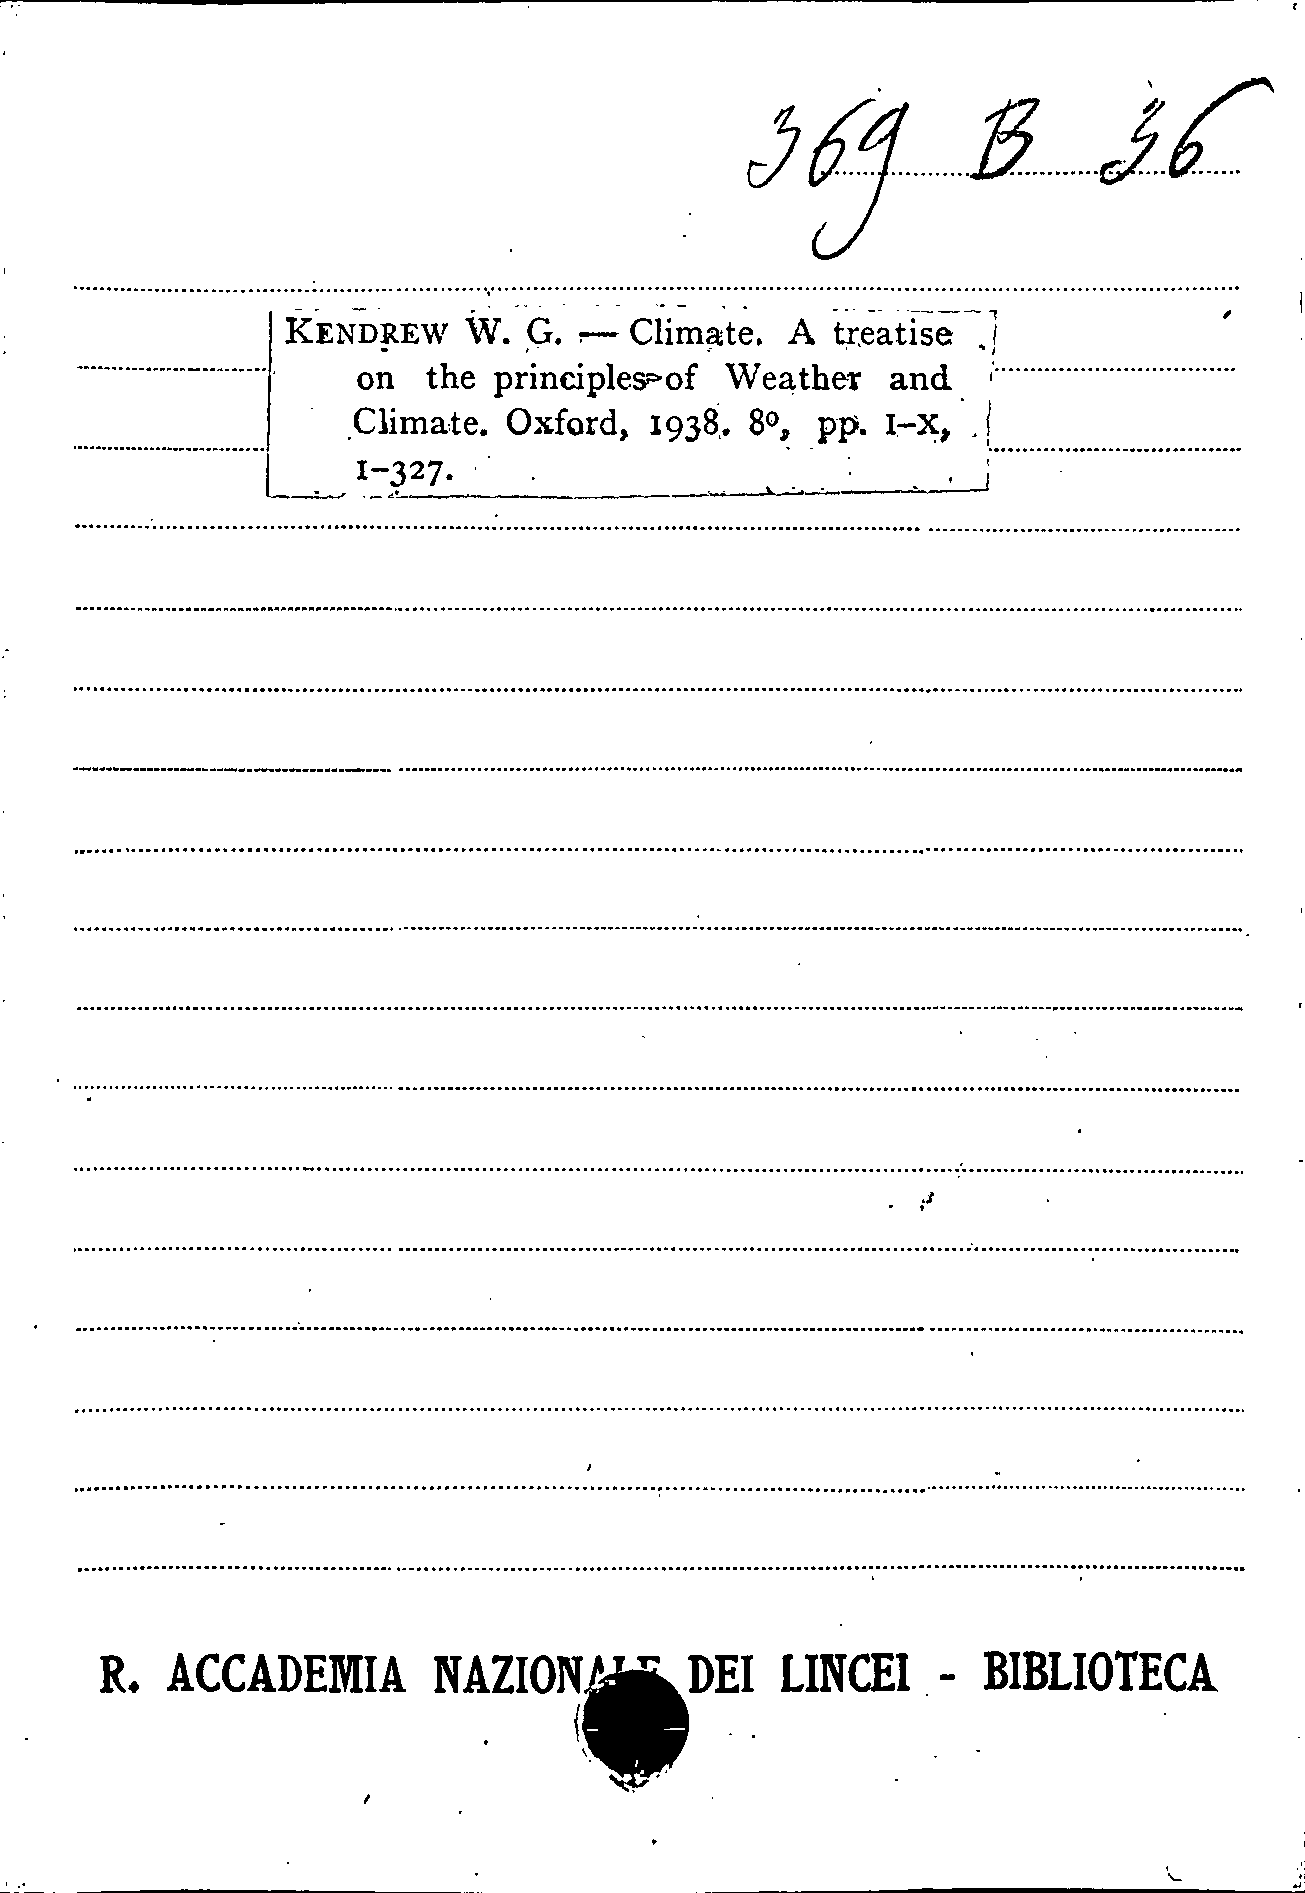 369 B 36
KENDREW W. G. — Climate. A treatise
on the principles of Weather and
Climate. Oxford, 1938. 8º, pp. I-X,
1-327.
R. ACCADEMIA NAZIONALE DEI LINCEI - BIBLIOTECA